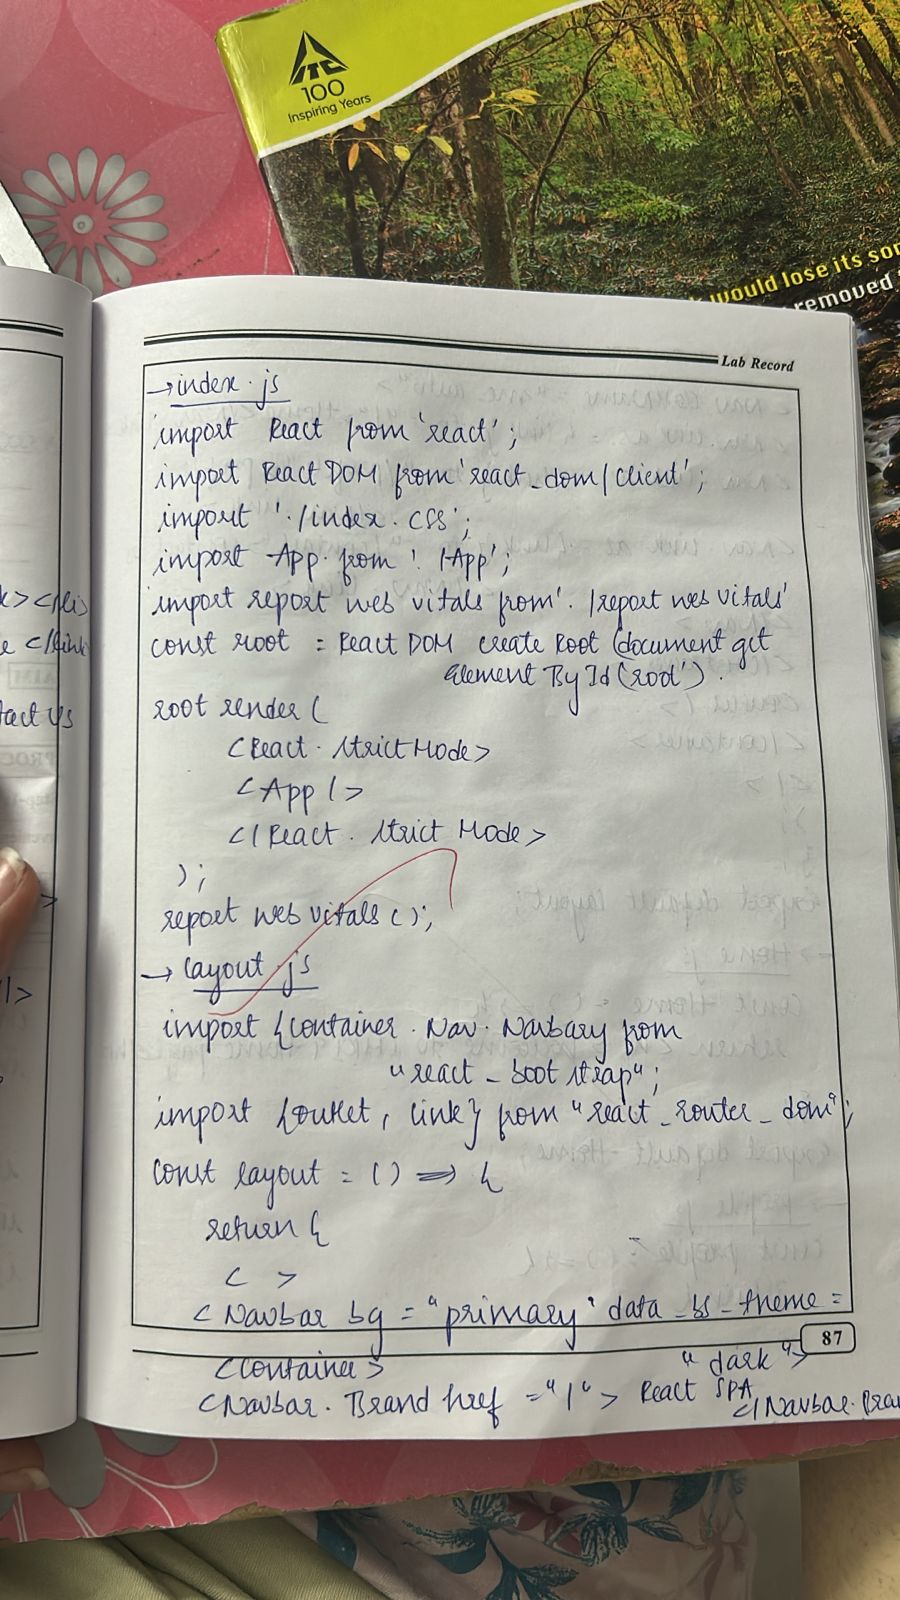 ITC
100
Inspiring Years
would lose its so
removed
Lab Record
→ index.js
import React from 'react';
import React DOM from 'react_dom/client';
import './index.css';
import App from './App';
import report web vitals from './report web vitals'
const root = React DOM create Root (document get
Element By Id (root').
root render (
<React. Strict Mode>
<App />
</React. Strict Mode>
);
report web vitals ();
→ layout.js
import {Container. Nav. Navbary from
"react_boot strap";
import {outlet, link} from "react_router_dom";
const layout = () => {
return {
< >
<Navbar bg = "primary" data_bs_theme =
"dark">
87
<Container>
<Navbar. Brand href = "/"> React SPA
</Navbar. Bra
></li>
</link
tact Us
/>